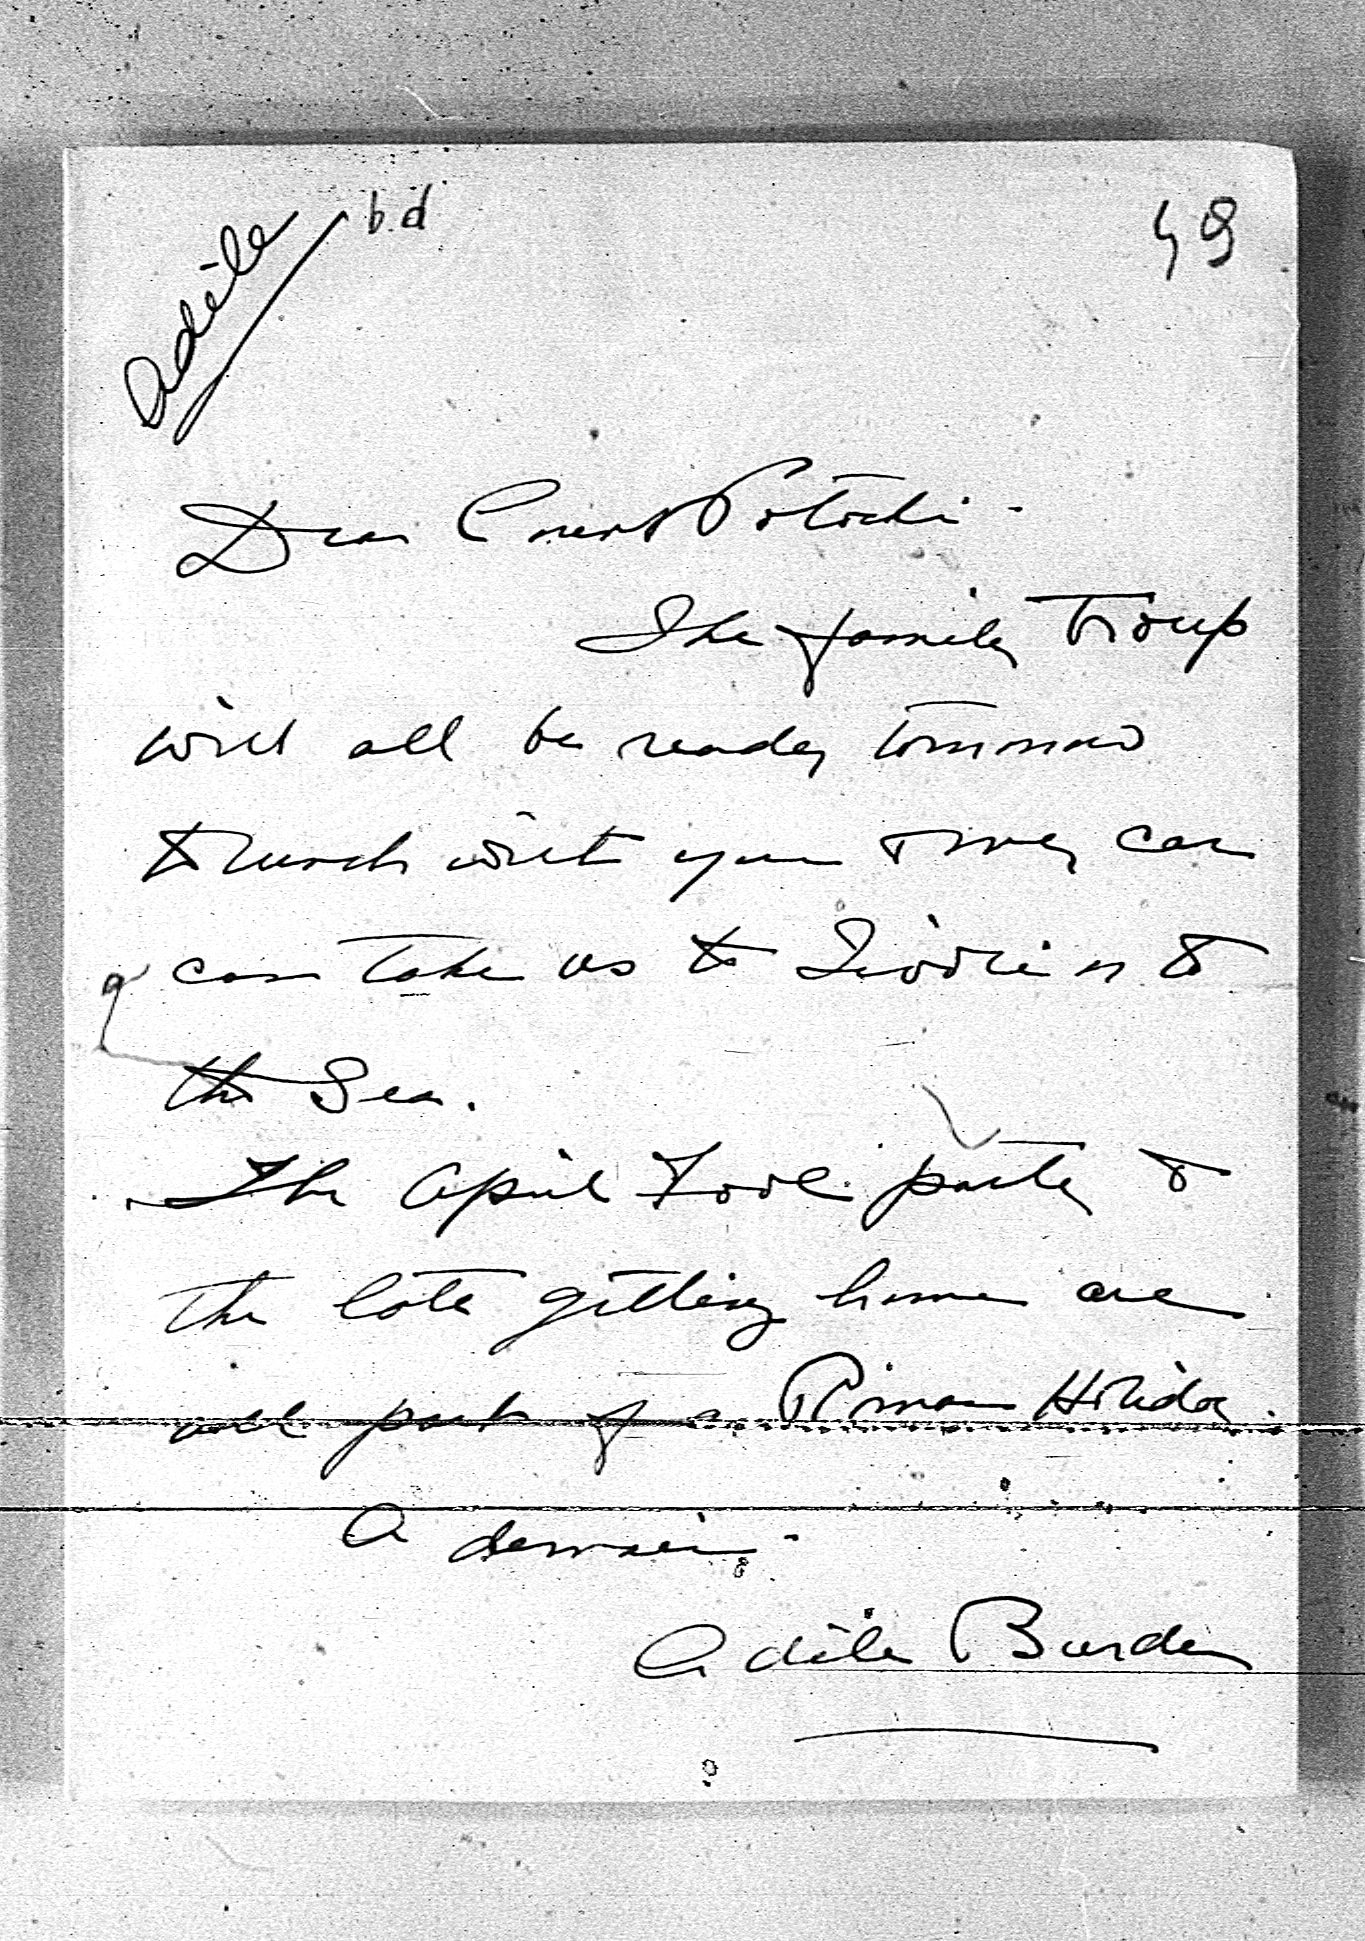 Adèle
b.d
49
Dear Count Potocki -
The family Troup
will all be ready tomorrow
to lunch with you & my car
can take us to Tivoli or to
the Sea.
The April Fool party &
the late getting home are
all part of a Roman Holiday.
A demain -
Adèle Burden